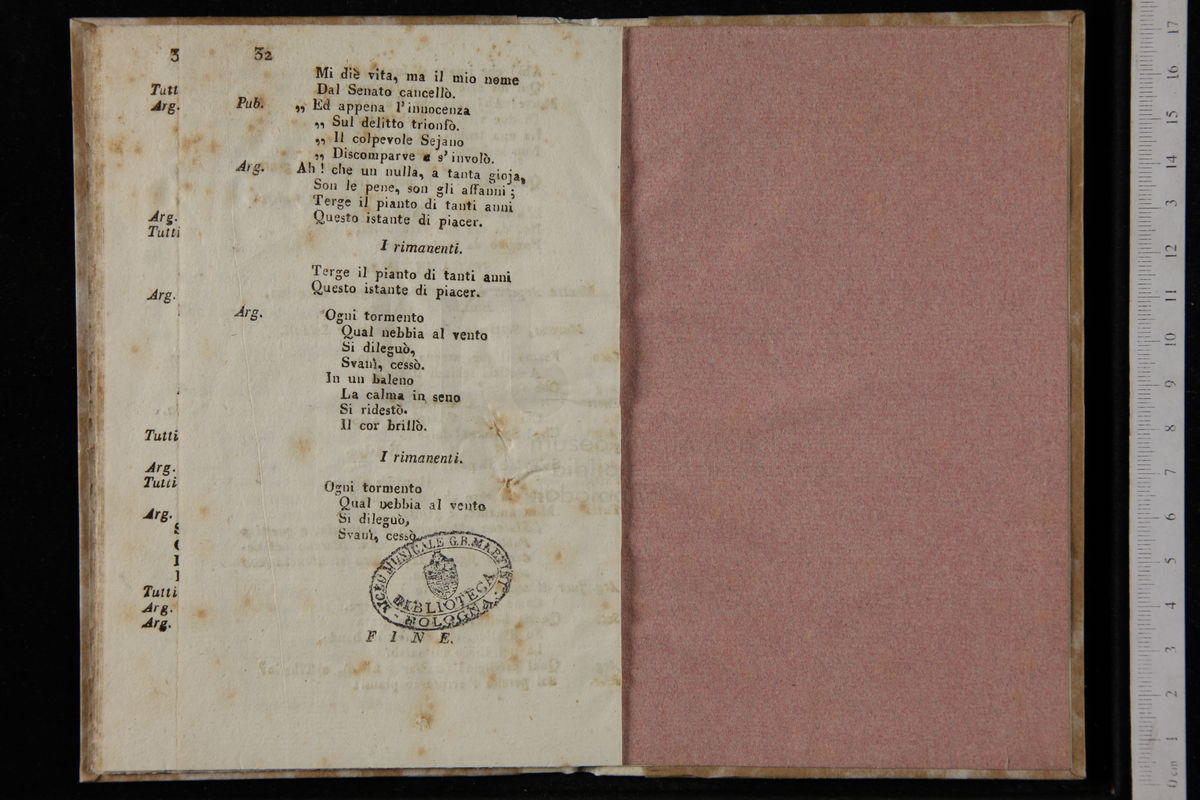 3
Tutt
Arg.
Arg.
Tutti
Arg.
Tutti
Arg.
Tutti
Arg.
Tutti
Arg.
Arg.
32
Mi diè vita, ma il mio nome
Dal Senato cancellò.
Pub. „ Ed appena l'innocenza
„ Sul delitto trionfò.
„ Il colpevole Sejano
„ Discomparve e s'involò.
Arg. Ah! che un nulla, a tanta gioja,
Son le pene, son gli affanni;
Terge il pianto di tanti anni
Questo istante di piacer.
I rimanenti.
Terge il pianto di tanti anni
Questo istante di piacer.
Arg. Ogni tormento
Qual nebbia al vento
Si dileguò,
Svanì, cessò.
In un baleno
La calma in seno
Si ridestò.
Il cor brillò.
I rimanenti.
Ogni tormento
Qual nebbia al vento
Si dileguò,
Svanì, cessò
LICEO MUSICALE G.B. MARTINI
BIBLIOTECA
BOLOGNA
FINE.
0 cm 1 2 3 4 5 6 7 8 9 10 11 12 13 14 15 16 17